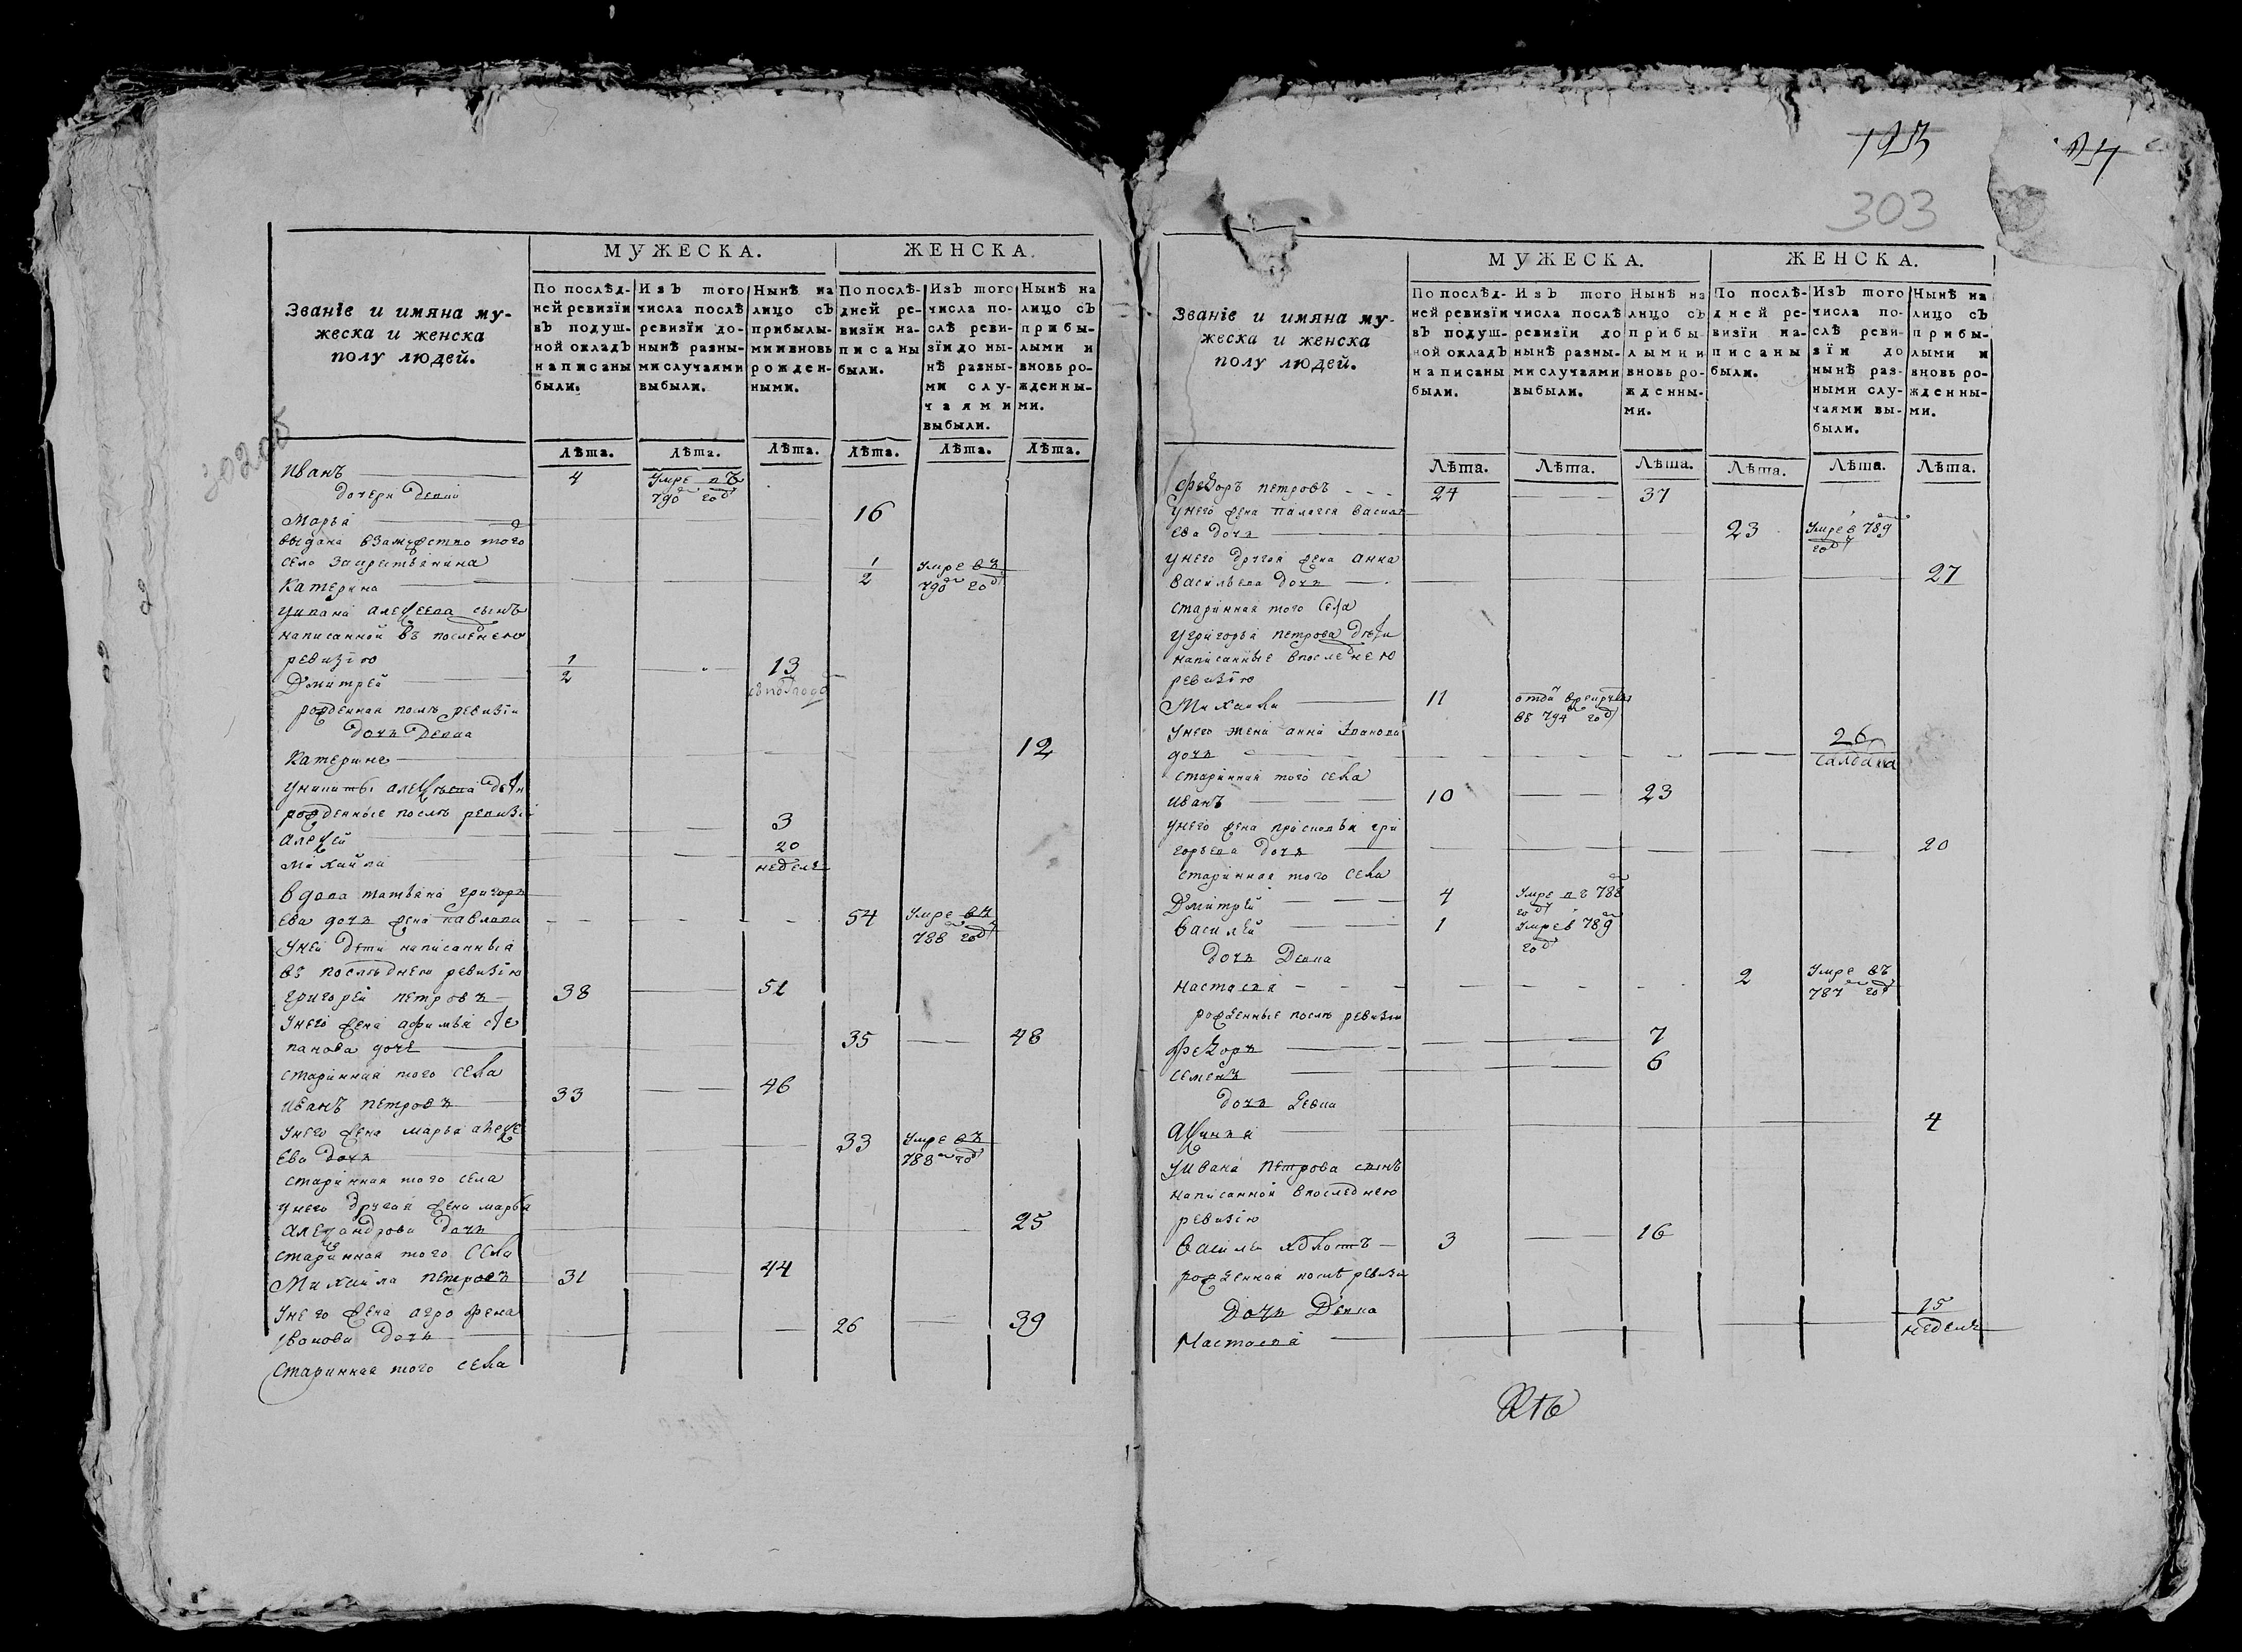 123
303
302об
МУЖЕСКА.
ЖЕНСКА.
Званіе и имяна му-
жеска и женска
полу людей.
По послѣд-
ней ревизіи
въ подуш-
ной окладъ
написаны
были.
Изъ того
числа послѣ
ревизіи до-
нынѣ разны-
ми случаями
выбыли.
Нынѣ на
лицо съ
прибылы-
ми и вновь
рожден-
ными.
По послѣ-
дней ре-
визіи на-
писаны
были.
Изъ того
числа по-
слѣ реви-
зіи до ны-
нѣ разны-
ми слу-
чаями
выбыли.
Нынѣ на
лицо съ
прибы-
лыми и
вновь ро-
жденны-
ми.
Лѣта. Лѣта. Лѣта. Лѣта. Лѣта. Лѣта.
Иванъ 4 Умре въ
790 год
дочери девки
Марья 16
выдана взамужство того
села закрестьянина
Катерина 1/2 Умре въ
790 год
Уивана алексеева сынъ
написанной въ последнею
ревизїю
Дмитрей 1/2 13
рожденная послѣ ревизїи
дочь Девка
Катерина 12
Уникиты алексѣева дети
рожденные послѣ ревизи
алексей 3
Михайла 20
недель
вдова татьяна григорь
ева дочь жена павлова 54 Умре въ
788 год
Уней дети написанныя
въ последнею ревизїю
григорей петровъ 38 51
Унего жена афимья сте
панова дочь 35 48
старинная того села
иванъ петровъ 33 46
Унего жена марья алексе
ева дочь 33 Умре въ
788 год
старинная того села
унего другая жена марья
александрова дочь 25
старинная того села
Михайла петровъ 31 44
Унего жена аграфена
Иванова дочь 26 39
старинная того села
МУЖЕСКА.
ЖЕНСКА.
Званіе и имяна му-
жеска и женска
полу людей.
По послѣд-
ней ревизіи
въ подуш-
ной окладъ
написаны
были.
Изъ того
числа послѣ
ревизіи до
нынѣ разны-
ми случаями
выбыли.
Нынѣ на
лицо съ
прибы-
лыми и
вновь ро-
жденны-
ми.
По послѣ-
дней ре-
визіи на-
писаны
были.
Изъ того
числа по-
слѣ реви-
зіи до
нынѣ раз-
ными слу-
чаями вы-
были.
Нынѣ на
лицо съ
прибы-
лыми и
вновь ро-
жденны-
ми.
Лѣта. Лѣта. Лѣта. Лѣта. Лѣта. Лѣта.
Федоръ петровъ 24 37
унего жена палагея василь
ева дочь 23 Умре в 789
год
унего другая жена анна
васильева дочь 27
старинная того села
Угригорья петрова дети
написанные впоследнею
ревизїю
Михайла 11 отдан врекруты
въ 794 год
унего жена анна Іванова
дочь 26
салдатка
старинная того села
иванъ 10 23
унего жена прасковья гри
горьева дочь 20
старинная того села
Дмитрей 4 Умре въ 788
год
василей 1 Умре в 789
год
дочь Девка
настасья 2 Умре въ
787 год
рожденные послѣ ревизии
федоръ 7
семенъ 6
дочь Девка
аксинья 4
Уивана петрова сынъ
написанной впоследнею
ревизїю
Василей холостъ 3 16
рожденная послѣ ревизи
Дочь Девка
Настасья 15
недель